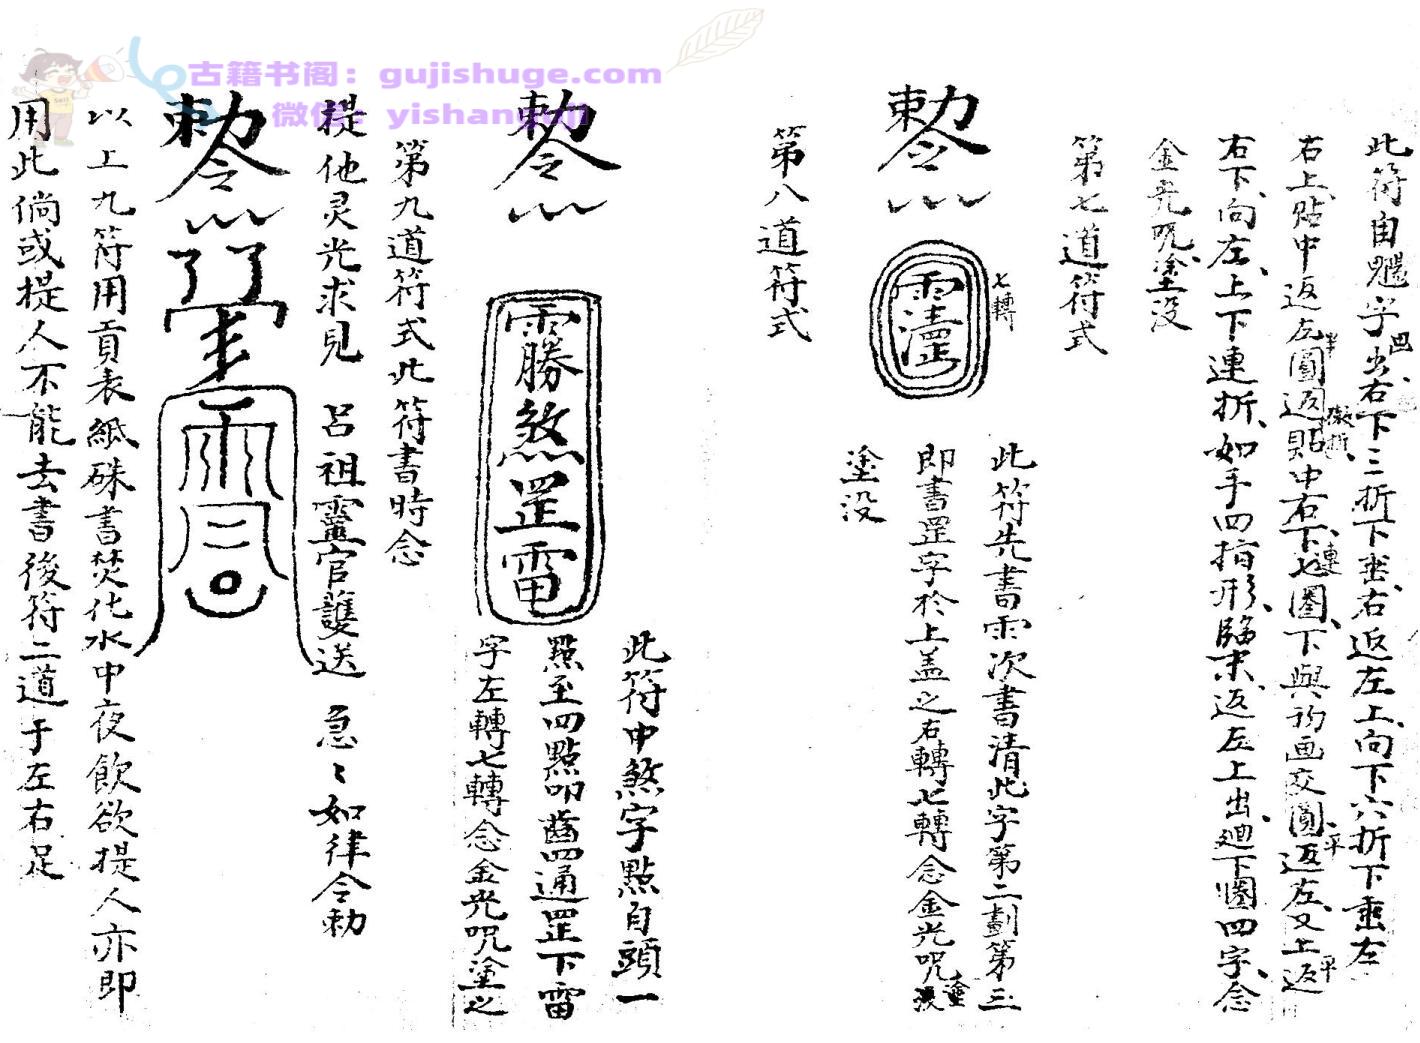 古籍书阁：gujishuge.com
微信：yishanguji
此符自魒字出右下三折下垂右返左上向下六折下垂左
右上貼中返左圓返貼中右下七圈下與初画交圓返左又上返
右下向左上下連折如手四指形臨末返左上出廻下圈四字念
金光咒塗没
第七道符式
敕令
七轉
雨漕罡
此符先書雨次書清此字第二劃第三
即書罡字於上盖之右轉七轉念金光咒塗没
塗没
第八道符式
敕令
雨勝煞罡雷
此符中煞字點自頭一
點至四點叩齒四通罡下雷
字左轉七轉念金光咒塗之
第九道符式此符書時念
提他灵光求見 呂祖靈官護送 急々如律令勅
敕令
以上九符用貢表紙硃書焚化水中夜飲欲提人亦即
用此倘或提人不能去書後符二道于左右足